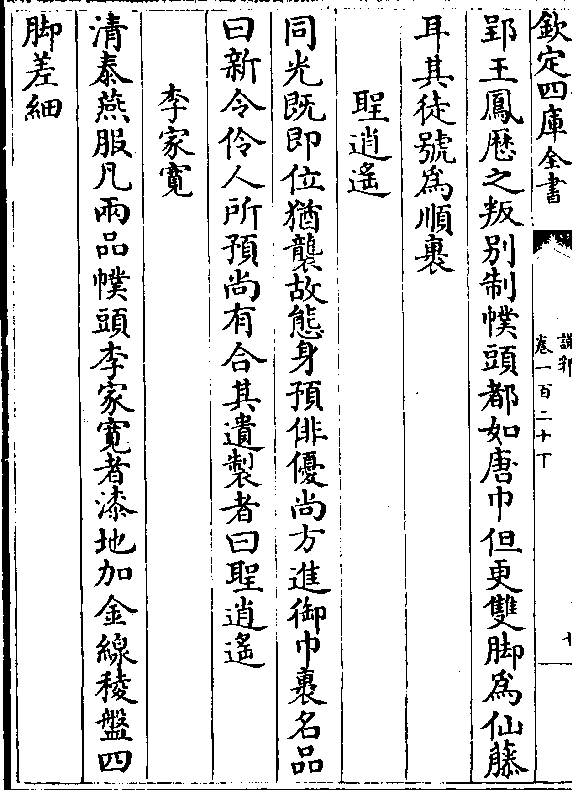 欽定四庫全書
卷一百二十下
郢王鳳歷之叛别制幞頭都如唐巾但更雙脚為仙藤
耳其徒號為順裹
聖逍遙
同光既即位猶襲故態身預俳優尚方進御巾裹名品
日新令伶人所預尚有合其遺製者曰聖逍遙
李家寛
清泰燕服凡兩品幞頭李家寛者漆地加金線稜盤四
脚差細